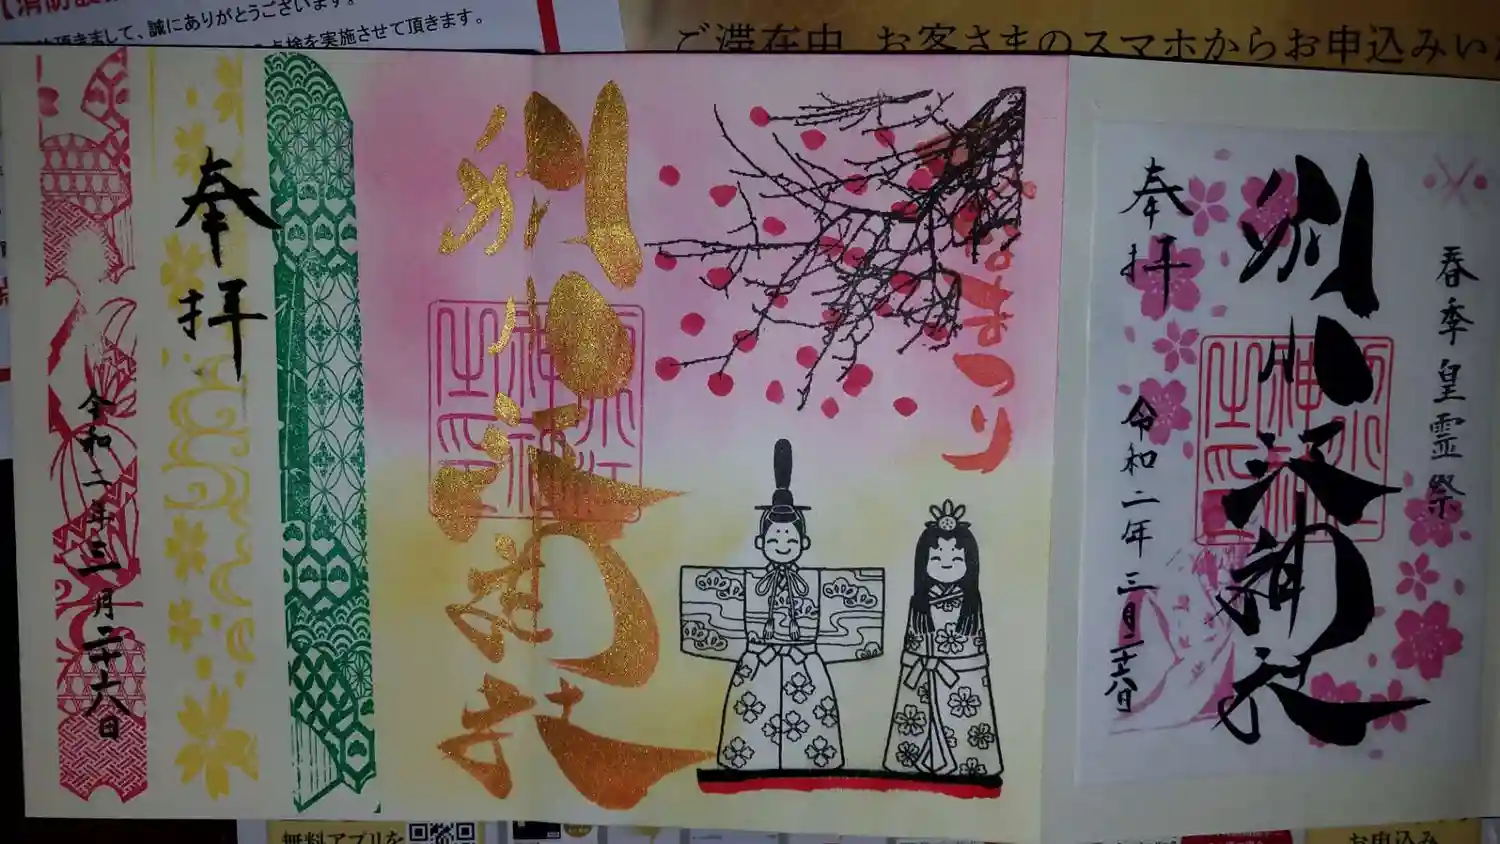 頂きまして、誠にありがとうございます。
点検を実施させて頂きます。
ご滞在中、お客さまのスマホからお申込みい
奉拝
令和二年三月二十六日
別小江神社
まつり
春季皇霊祭
別小江神社
奉拝
令和二年三月二十六日
無料アプリを
お申込み